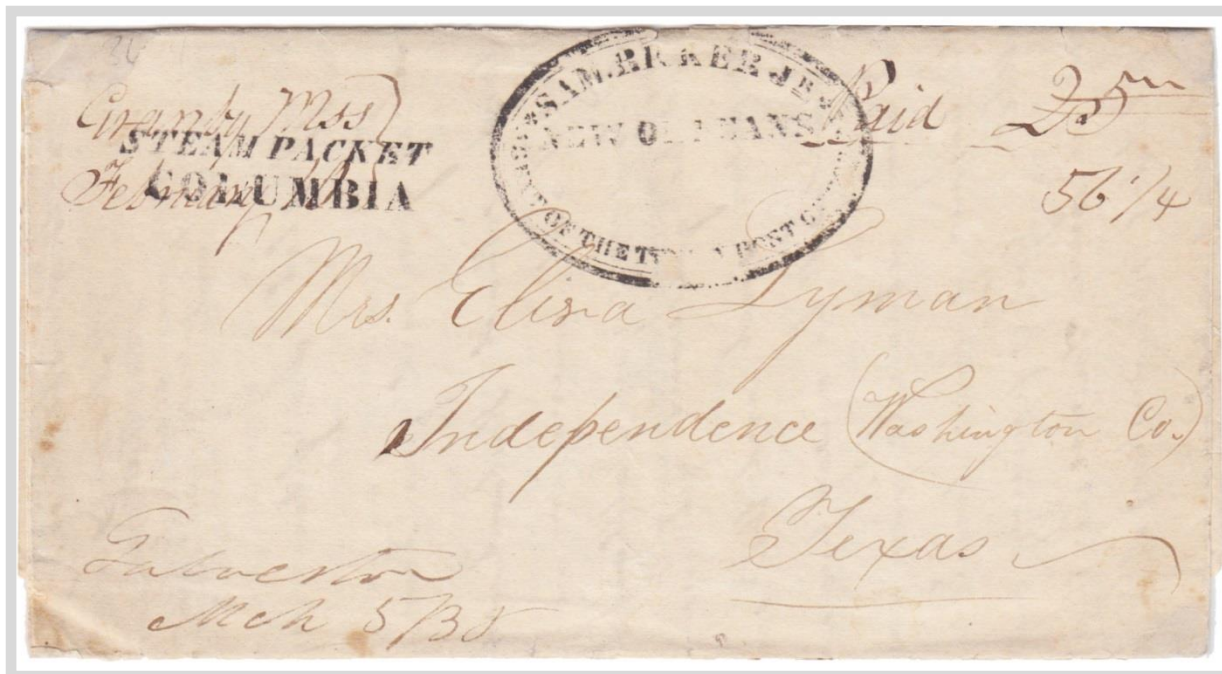 Granby Mss
February
STEAM PACKET
COLUMBIA
SAM. RICKER JR.
NEW ORLEANS
OF THE TEXIAN POST
Paid 25
56 1/4
Mrs. Eliza Lyman
Independence (Washington Co.)
Texas
Galveston
Mch 5/38